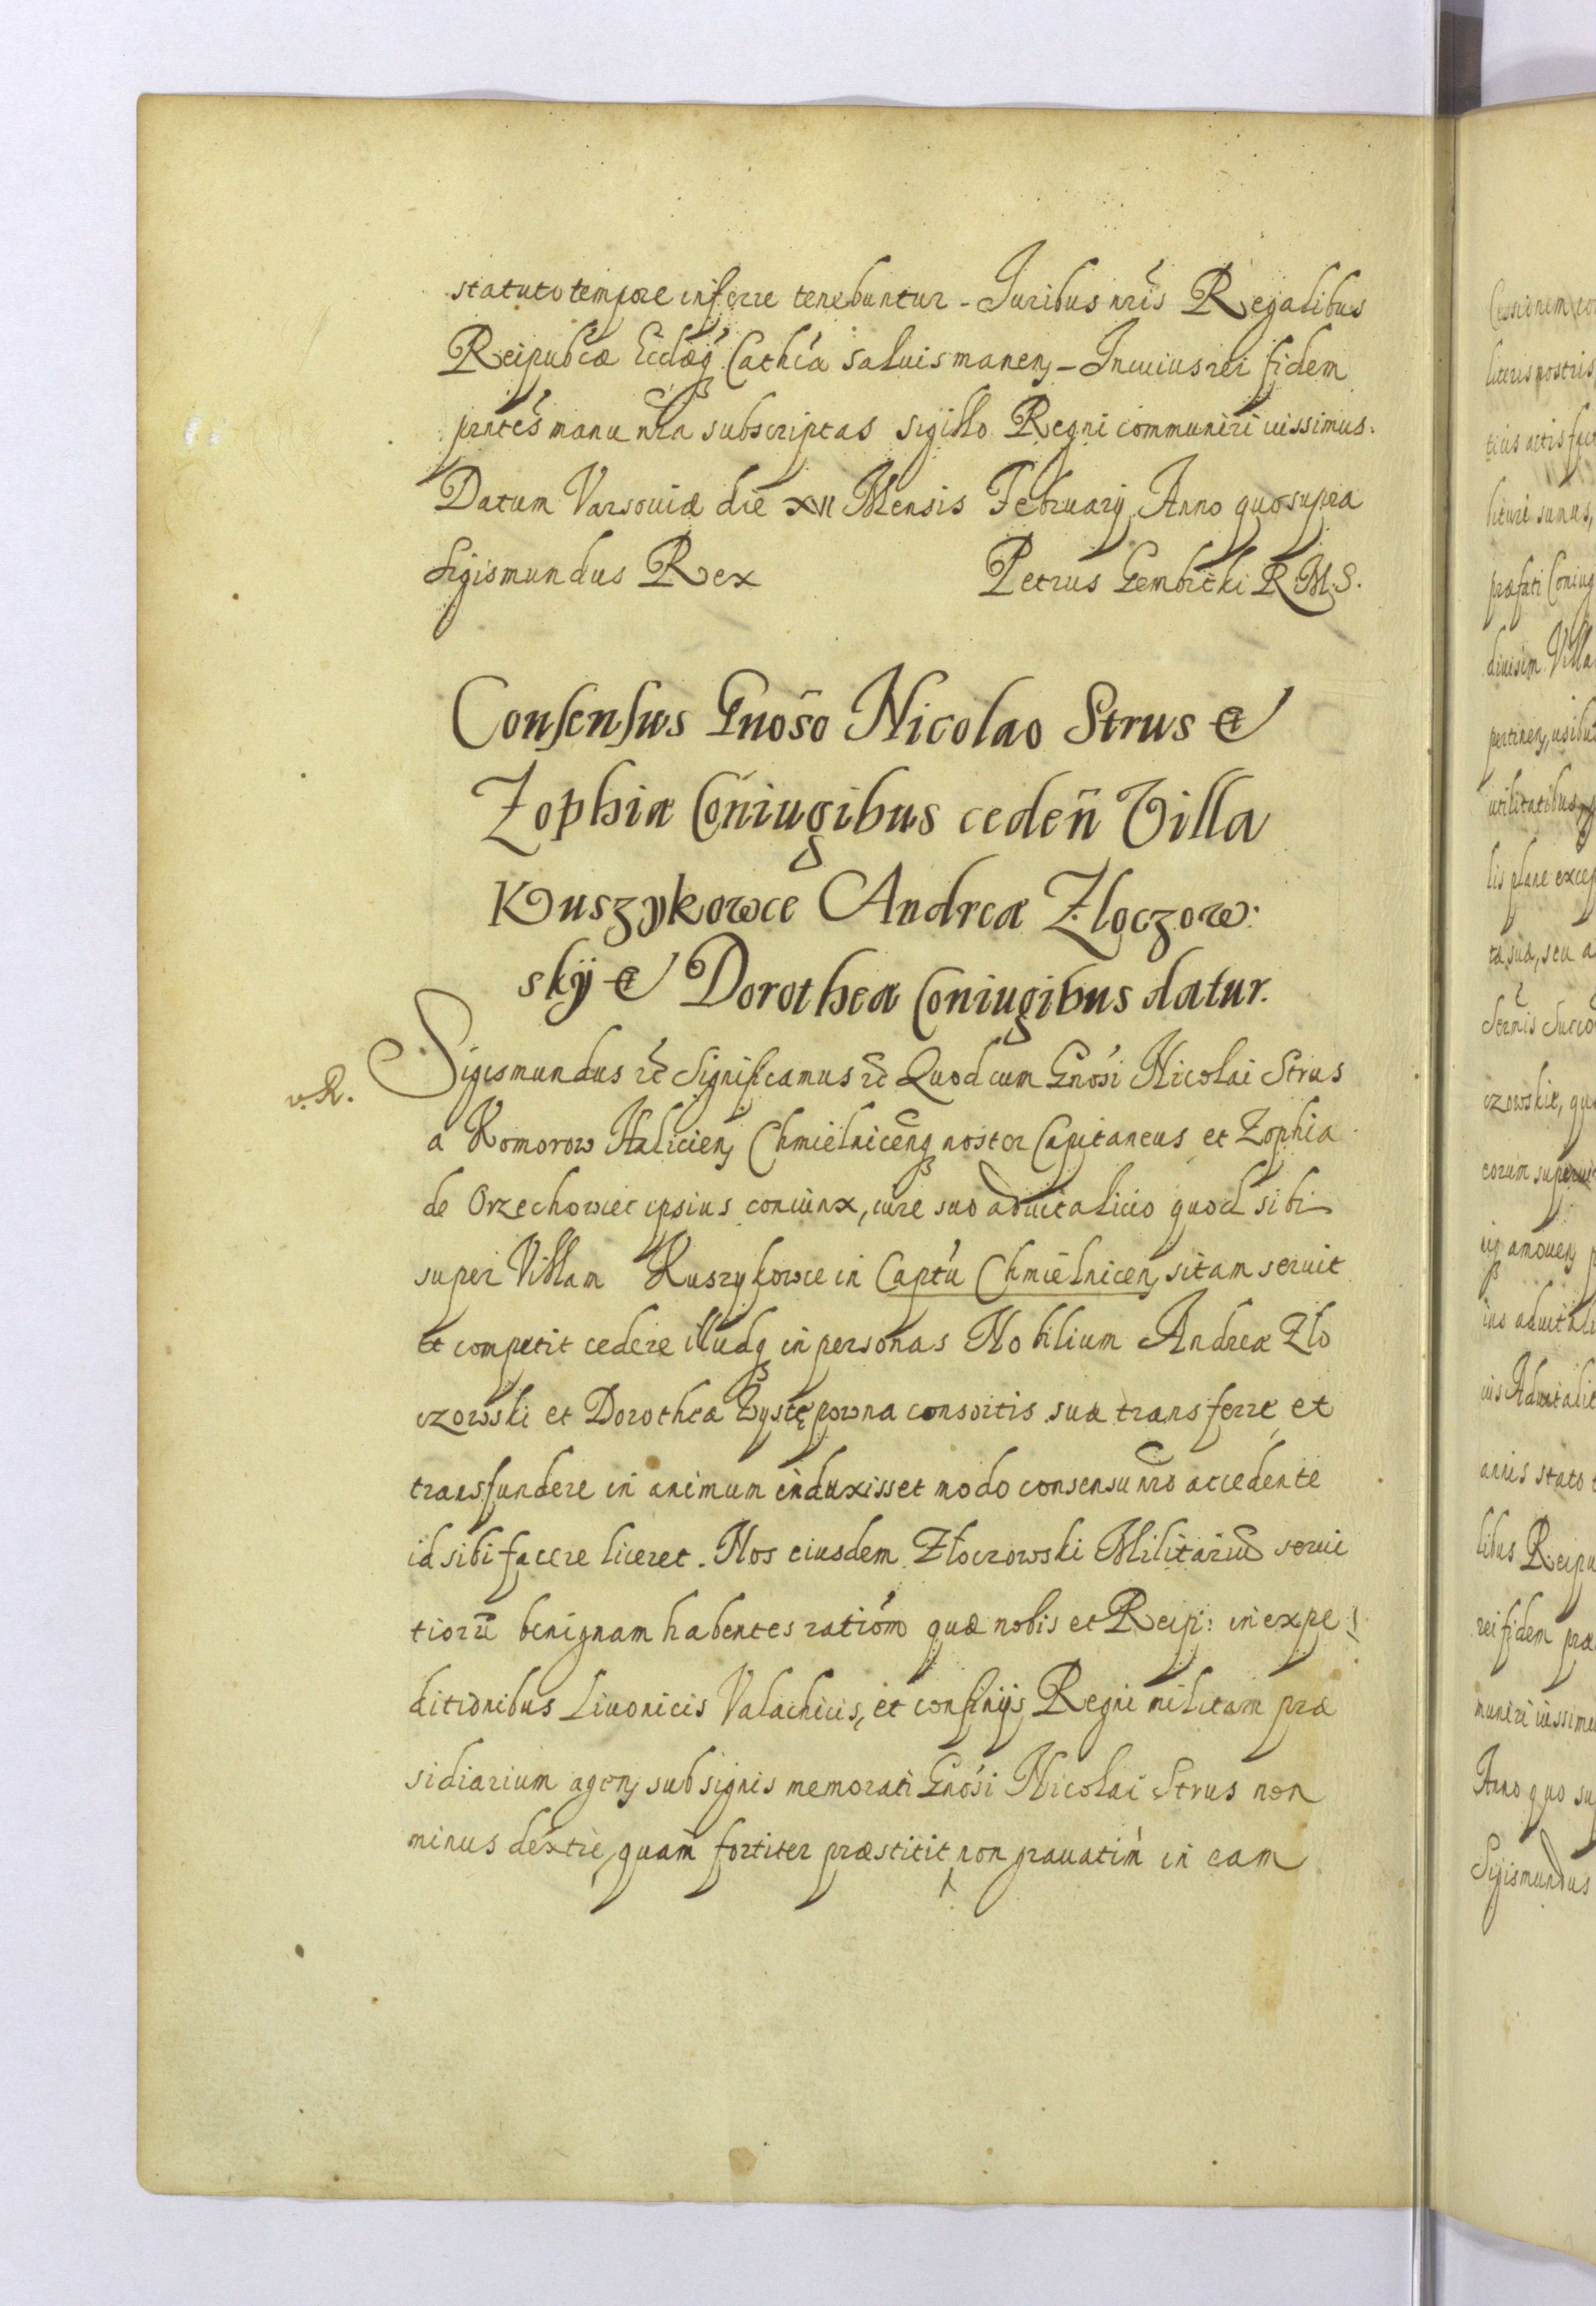 statuto tempore inferre tenebuntur - Juribus nr̃is Regalibus
Reipub́cæ Eccłæq́ Cathća saluis manen, - In cuius rei fidem
pñtes manu nr̃a subscriptas sigillo Regni communiri iussimus.
Datum Varsouiæ die XII Mensis February Anno quo supra
Sigismundus Rex Petrus Gembitki R M. S.
Consensus Gnõso Nicolao Strus et
Zophiæ Cõniugibus cedeñ Villa
Kuszykowce Andreæ Zloczow:
skÿ et Dorothea Coniugibus datur.
v. R.
Sigismundus rc̃ Significamus rc̃ Quod cum Gnósi Nicolai Strus
a Komorow Halicien, Chmielnicenq noster Capitaneus et Zophia
de Orzechowiec ipsius coniunx, iure suo aduitalicio quod sibi
super Villam Kuszykowce in Captú Chmielnicen, sitam seruit
et competit cedere illudq in personas Nobilium Andreæ Zło
czowski et Dorothea Zystępowna consortis suæ transferre et
transfundere in animum induxisset modo consensu nr̃o accedente
id sibi facere liceret. Nos eiusdem Złoczowski Militariũ serui
tiorũ benignam habentes ratióm quæ nobis et Reip: in expe
ditionibus Liuonicis Valachicis, et confinijs Regni militam præ
sidiarium agen, sub signis memorati Gnósi Nicolai Strus non
minus dextrè, quam fortiter præstitit non grauatim in eam
Cessionem
literis nostris
tius actis
bituri sumus,
præfati Coniug
diuisim Villa
pertinen, usibus
utilitatibus
lis plane excep
ta sua, seu a
Serñis Succo
czowskie,
eorum
amouen,
ius aduitali
ius Aduitalic
annis stato
libus Reipu
rei fidem præ
muniri iussimu
Anno quo su
Sigismundus